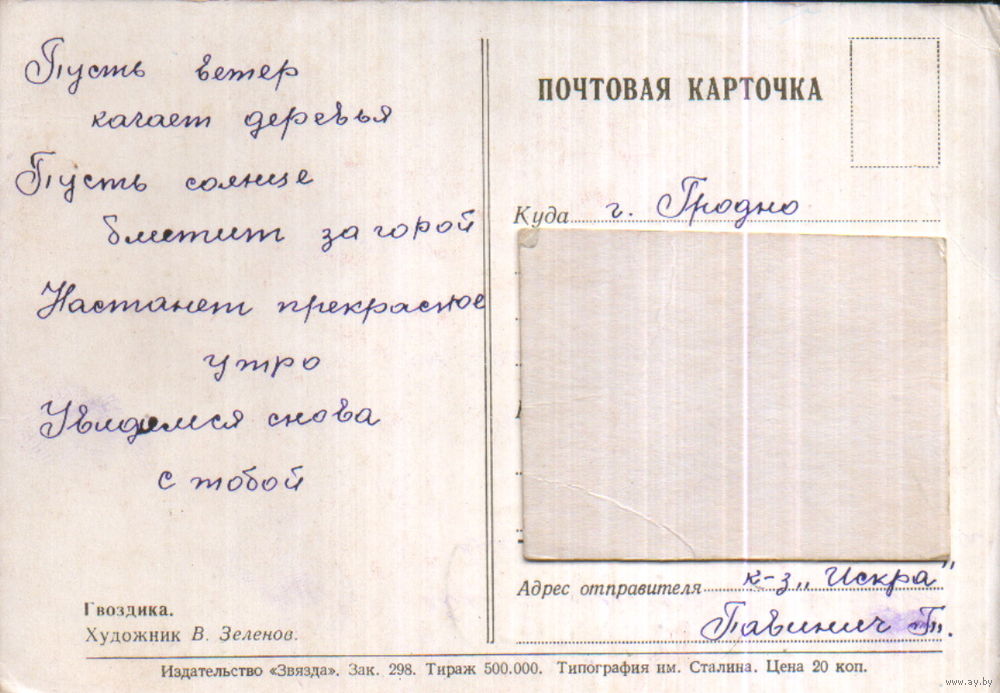 Пусть ветер
качает деревья
Пусть солнце
блестит за горой
Настанет прекрасное
утро
Увидимся снова
с тобой
Гвоздика.
Художник В. Зеленов.
ПОЧТОВАЯ КАРТОЧКА
Куда г. Гродно
Адрес отправителя к-з „Искра"
Павинич Т.
Издательство «Звязда». Зак. 298. Тираж 500.000. Типография им. Сталина. Цена 20 коп.
www.ay.by